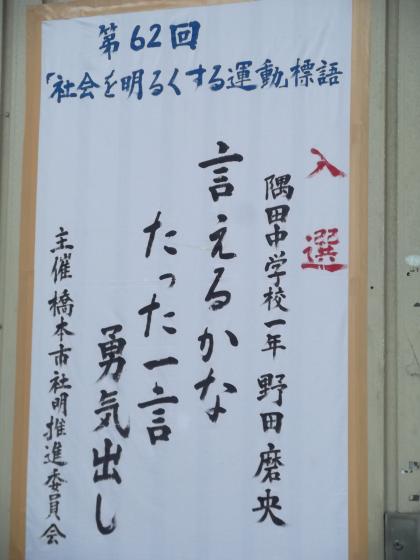 第62回
「社会を明るくする運動標語
入選
隅田中学校一年 野田磨央
言えるかな
たった一言
勇気出し
主催橋本市社明推進委員会